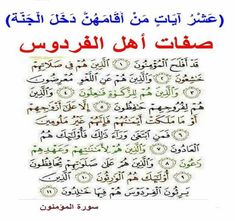 (عَشْرُ آيَاتٍ مَنْ أَقَامَهُنَّ دَخَلَ الْجَنَّةَ)
صفات أهل الفردوس
قَدْ أَفْلَحَ الْمُؤْمِنُونَ ١ الَّذِينَ هُمْ فِي صَلَاتِهِمْ
خَاشِعُونَ ٢ وَالَّذِينَ هُمْ عَنِ اللَّغْوِ مُعْرِضُونَ
٣ وَالَّذِينَ هُمْ لِلزَّكَاةِ فَاعِلُونَ ٤ وَالَّذِينَ
هُمْ لِفُرُوجِهِمْ حَافِظُونَ ٥ إِلَّا عَلَى أَزْوَاجِهِمْ
أَوْ مَا مَلَكَتْ أَيْمَانُهُمْ فَإِنَّهُمْ غَيْرُ مَلُومِينَ
٦ فَمَنِ ابْتَغَى وَرَاءَ ذَلِكَ فَأُولَئِكَ هُمُ
الْعَادُونَ ٧ وَالَّذِينَ هُمْ لِأَمَانَاتِهِمْ وَعَهْدِهِمْ
رَاعُونَ ٨ وَالَّذِينَ هُمْ عَلَى صَلَوَاتِهِمْ يُحَافِظُونَ
٩ أُولَئِكَ هُمُ الْوَارِثُونَ ١٠ الَّذِينَ
يَرِثُونَ الْفِرْدَوْسَ هُمْ فِيهَا خَالِدُونَ ١١
سورة المؤمنون